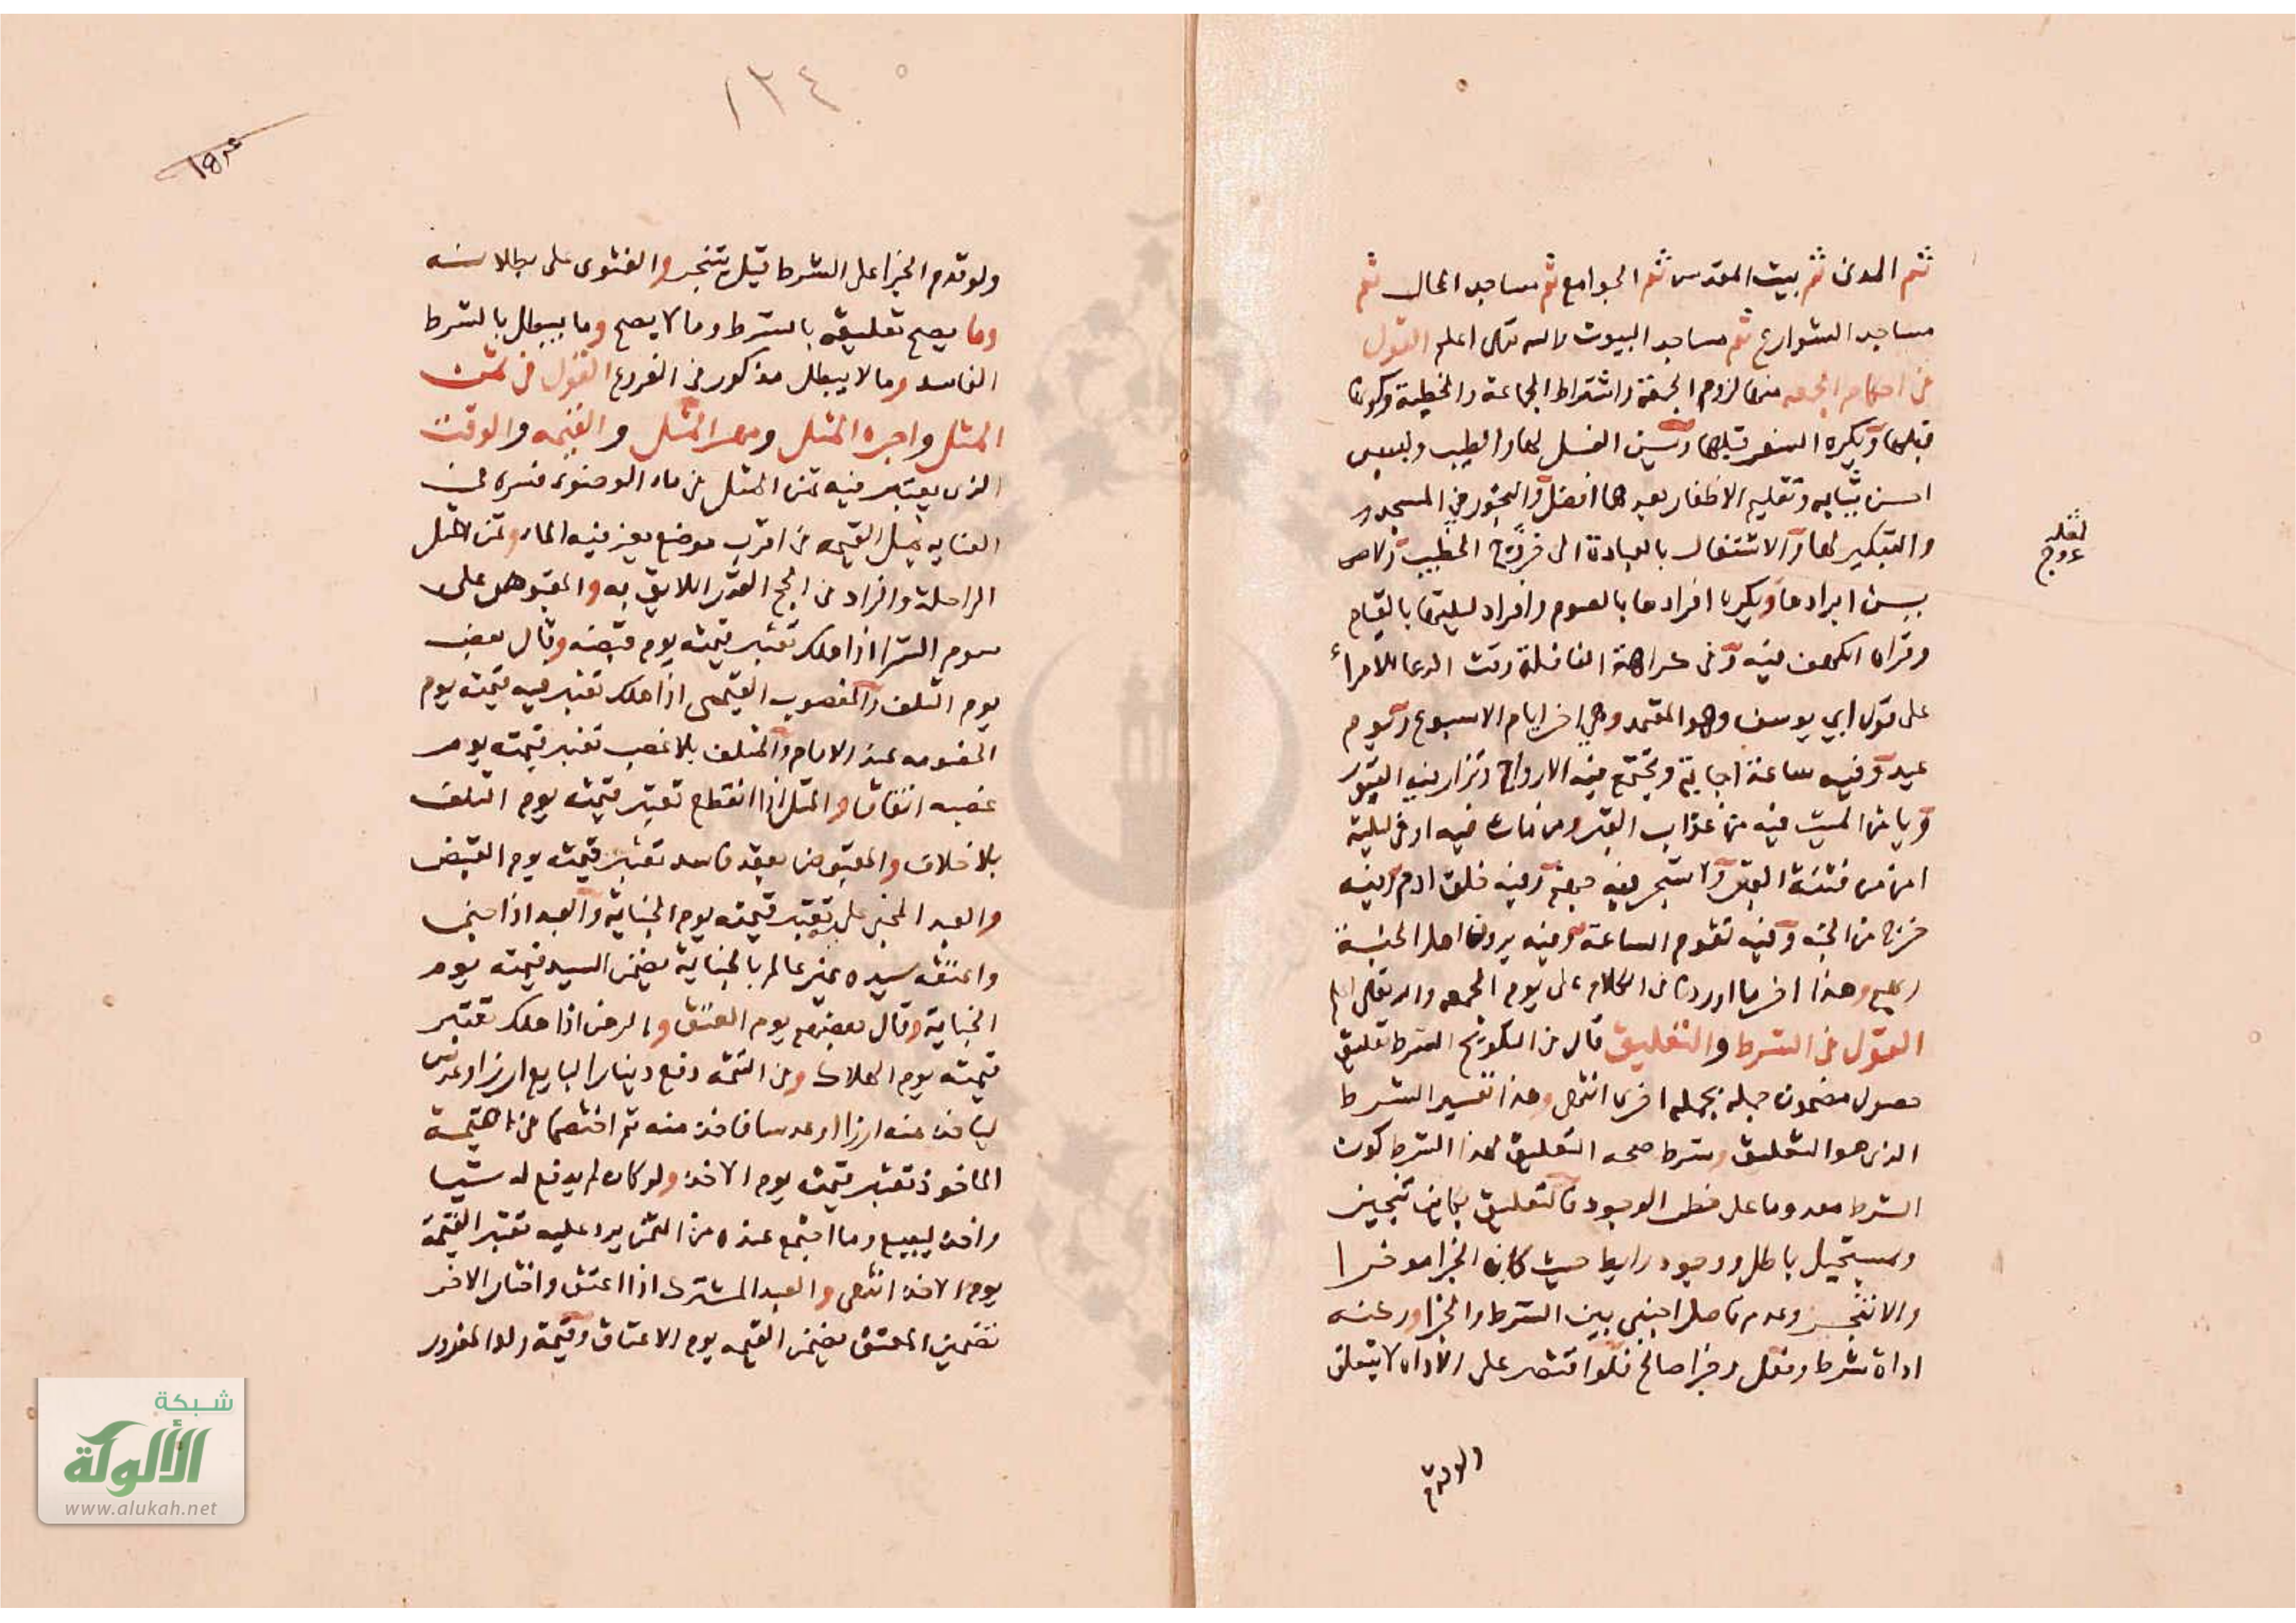 ثم المدنى ثم بيت المقدس ثم الجوامع ثم مساجد المحال ثم
مساجد الشوارع ثم مساجد البيوت والله تعالى اعلم القول
فى احكام الجمعه منها لزوم الجمعة واشتراط الجماعة والخطبة وكونها
قبلها ويكره السفر قبلها ويسن الغسل لها والطيب ولبس
احسن ثيابه وتقليم الاظفار بعدها افضل والبخور في المسجد
والتبكير لها والاشتغال بالعبادة الى خروج الخطيب ولا
يسن ابرادها ويكره افرادها بالصوم وافراد ليلتها بالقيام
وقراه الكهف فيه ونفى كراهة النافلة وقت الاستواء
على قول ابي يوسف وهو المعتمد وهي اخر ايام الاسبوع ويوم
عيد وفيه ساعة اجابة وتجتمع فيه الارواح وتزار فيه القبور
ويامن الميت فيه من عذاب القبر ومن مات فيه او فى ليلته
امن من فتنة القبر ولا تسجر فيه جهنم وفيه خلق ادم وفيه
خرج من الجنه وفيه تقوم الساعة وفيه يزورون اهل الجنة
ربهم وهذا اخر ما اوردنا فى الكلام على يوم الجمعه والله تعالى اعلم
القول فى الشرط والتعليق قال فى التلويح الشرط تعليق
حصول مضمون جمله بجمله اخرى انتهى وهذا تفسير الشرط
الذى هو التعليق وشرط صحه التعليق لهذا الشرط كون
الشرط معدوما على خطر الوجود فالتعليق بكاين تنجيز
وبمستحيل باطل ووجود رابط حيث كان الجزا موخرا
والا تنجز وعدم فاصل اجنبى بين الشرط والجزا وركنه
اداة شرط وفعل وجزا صالح فلو اقتصر على الاداه لا يتعلق
ولو قدم
١٢٤
ولو قدم الجزا على الشرط قيل يتنجز والفتوى على بطلانه
وما يصح تعليقه بالشرط وما لا يصح وما يبطل بالشرط
الفاسد وما لا يبطل مذكور فى الفروع القول فى ثمن
المثل واجره المثل ومهر المثل والقيمه والوقت
الذى يعتبر فيه ثمن المثل فى ماء الوضوء فسره في
العنايه بمثل القيمه فى اقرب موضع يعز فيه الماء وثمن المثل
الراحلة والزاد فى الحج القدر اللايق به والمقبوض على
سوم الشرا اذا هلك تعتبر قيمته يوم قبضه وقال بعض
يوم التلف والمغصوب القيمى اذا هلك تعتبر فيه قيمته يوم
الخصومه عند الامام والمتلف بلا غصب تعتبر قيمته يوم
غصبه اتفاقا والمثلى اذا انقطع تعتبر قيمته يوم التلف
بلا خلاف والمقبوض بعقد فاسد تعتبر قيمته يوم القبض
والعبد المجنى عليه تعتبر قيمته يوم الجناية والعبد اذا جنى
واعتقه سيده غير عالم بالجناية يضمن السيد قيمته يوم
الجناية وقال بعضهم يوم العتق والرهن اذا هلك تعتبر
قيمته يوم الهلاك وفى التتمه دفع دينارا لبايع ارز او عدس
لياخذ عنه ارزا او عدسا فاخذ منه ثم اختصما فى قيمة
الماخوذ تعتبر قيمته يوم الاخذ ولو كان لم يدفع له شيا
واخذ ليبيع وما اجتمع عنده من الثمن يرد عليه تعتبر القيمة
يوم الاخذ انتهى والعبد المشترك اذا اعتق واختار الاخر
تضمين المعتق يضمن القيمه يوم الاعتاق وقيمة ولد المغرور
شبكة
الألوكة
www.alukah.net